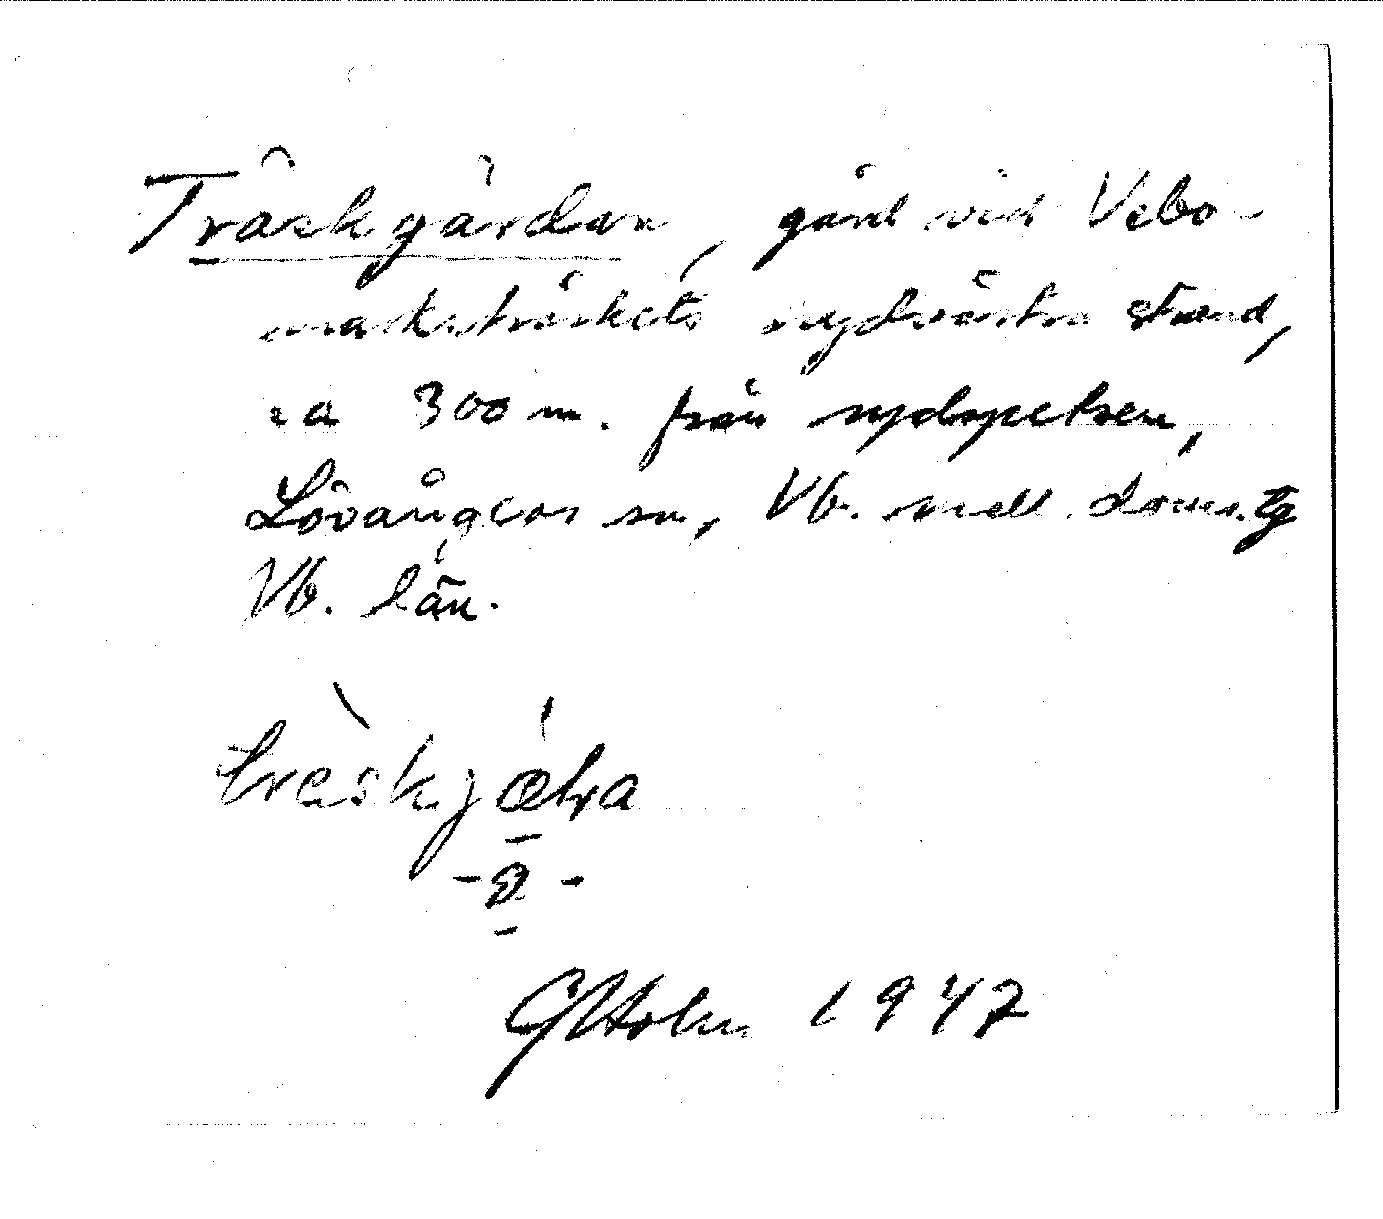 Träskgårdan, gård vid Vebo-
marksträskets sydvästra strand,
ca 300 m. från sydspetsen,
Lövångers sn, Vb. mell. doms.tg
Vb. län.
träskj
-
GHolm 1947